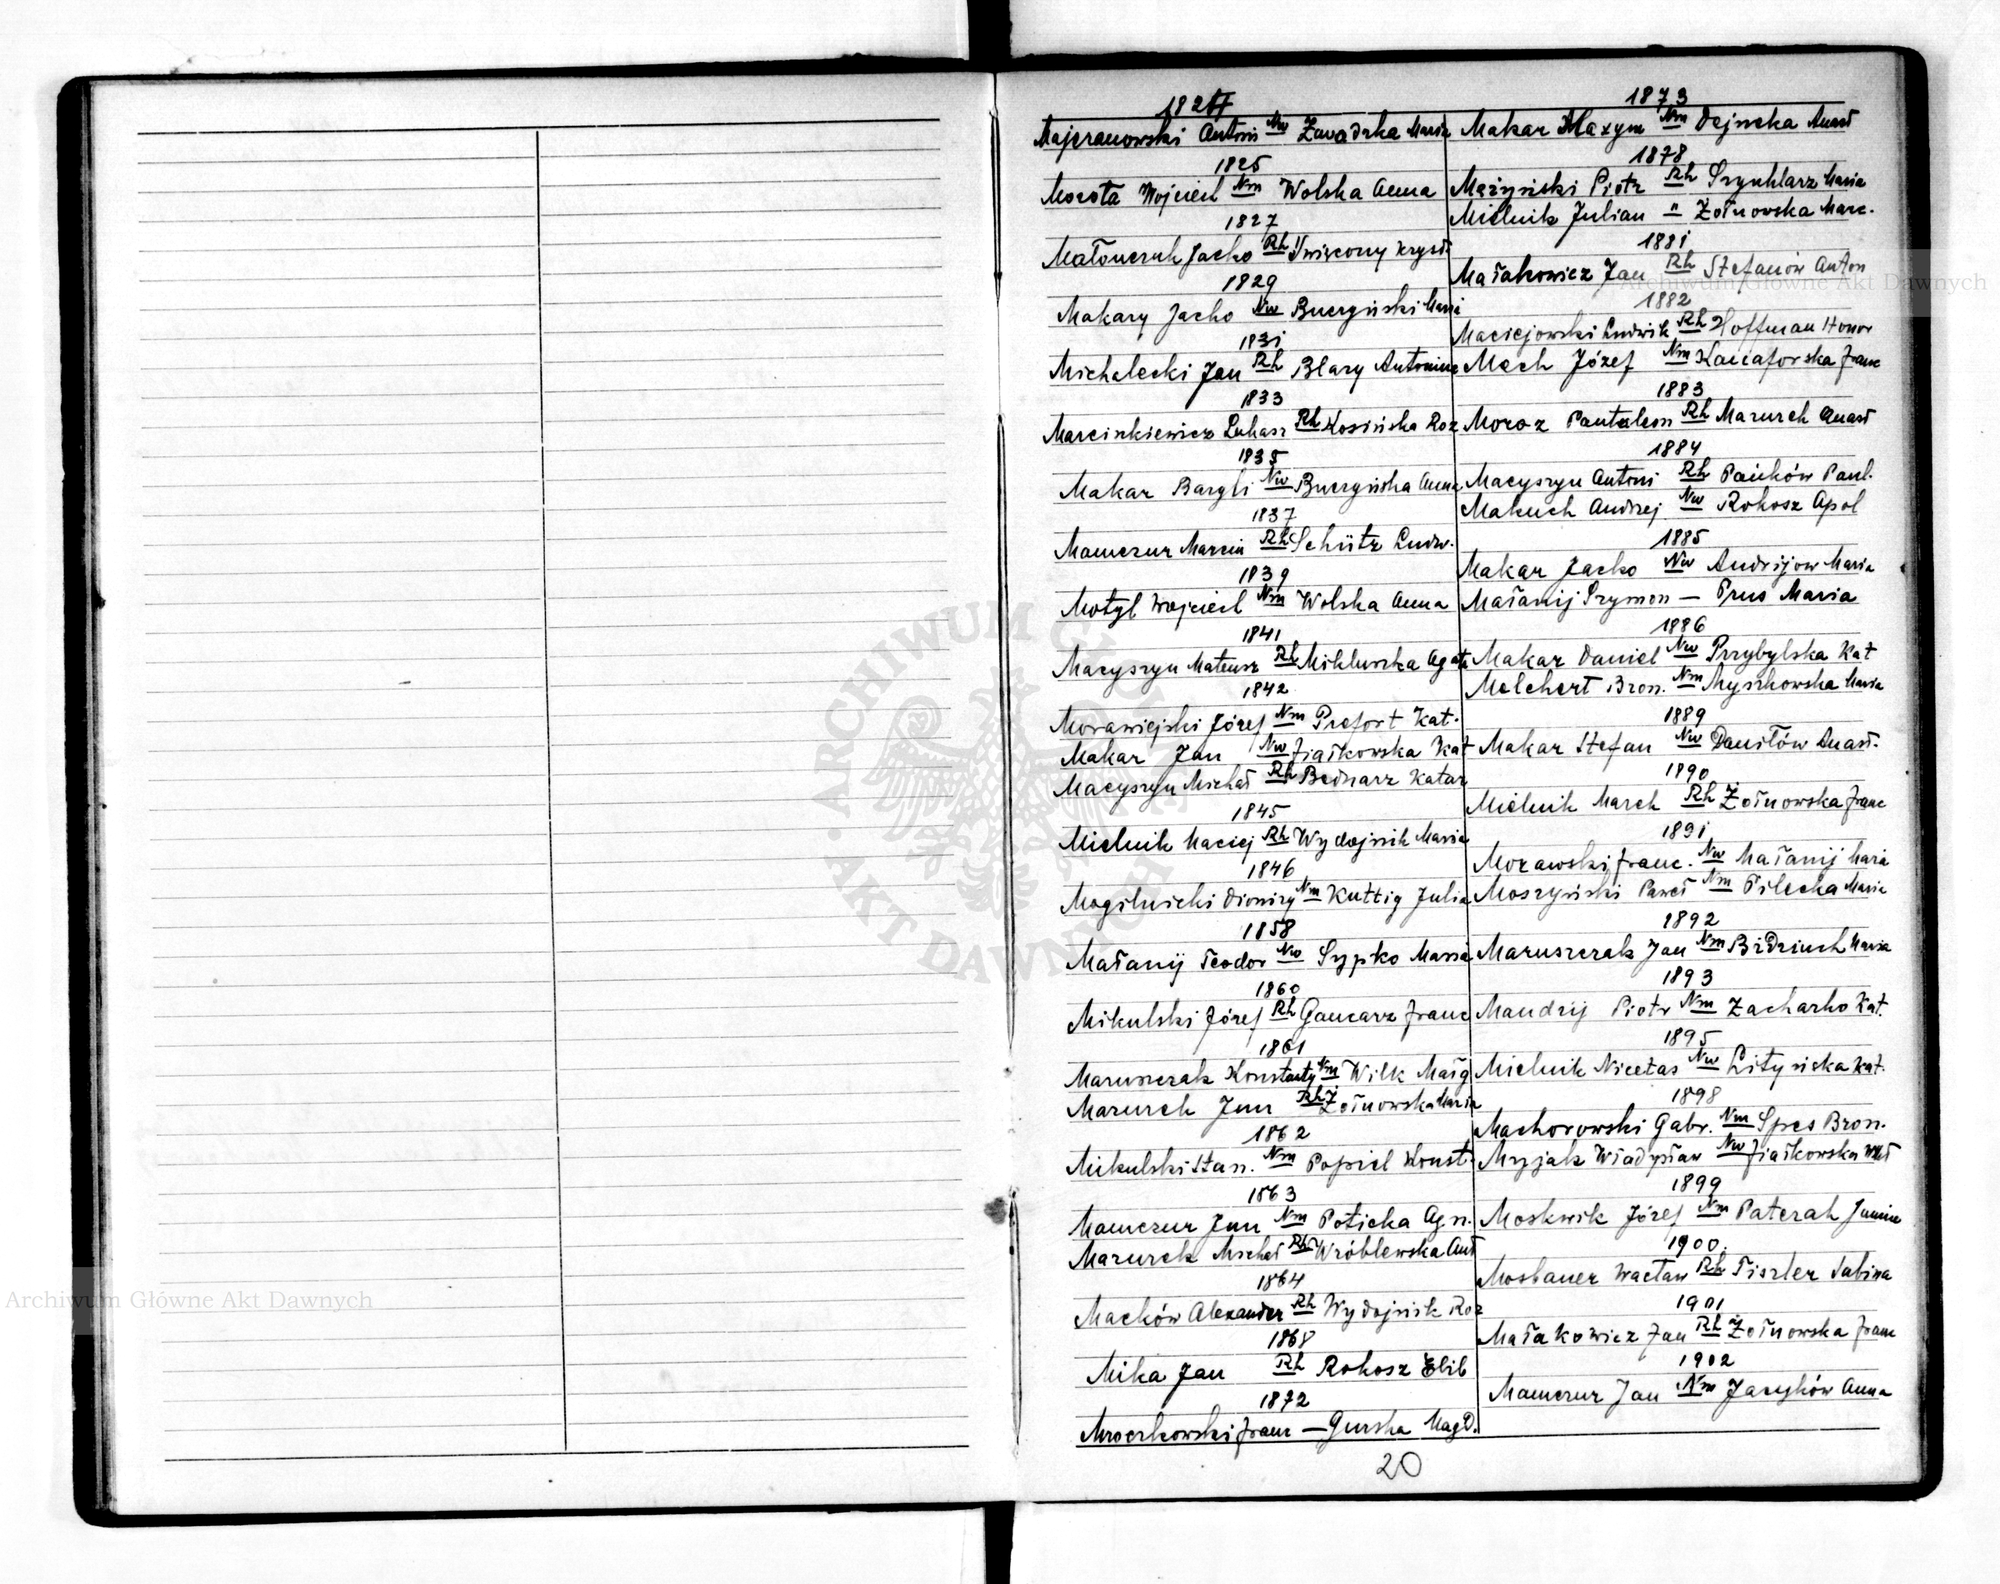 Majeranowski Antoni Nw Zawadzka Maria
1825
Morota Wojciech Nm Wolska Anna
1827
Małonczuk Jacko Rh Święcony Kryst
1829
Makary Jacko Nw Buczyński Maria
1831
Michalecki Jan Rh Blary Antonina
1833
Marcinkiewicz Łukasz Rh Kosińska Roz
1835
Makar Bazyli Nw Buczyńska Anna
1837
Mamczur Marcin Rh Schütz Ludw.
1839
Motyl Wojciech Nm Wolska Anna
1841
Macyszyn Mateusz Rh Mikluszka Agata
1842
Morawiejski Józef Nm Prefort Kat.
Makar Jan Nw Fiałkowska Kat
Macyszyn Michał Rh Bednarz Katar
1845
Mielnik Maciej Rh Wydojnik Maria
1846
Mogilnicki Dionizy Nm Kuttig Julia
1858
Małanij Teodor Nw Sypko Maria
1860
Mikulski Józef Rh Gancarz Franc
1861
Maruszczak Konstanty Nm Wilk Małg
Mazurek Jan Rh Żołnowska Maria
1862
Mikulski Stan. Nm Popiel Konst.
1863
Mamczur Jan Nm Poticka Agn.
Mazurek Michał Rh Wróblewska Ant
1864
Maćków Alexander Rh Wydojnik Roz
1868
Mika Jan Rh Rokosz Elib
1872
Mroczkowski Franc — Gurska Magd.
1873
Makar Maxym Nm Dejneka Anast
1878
Mężyński Piotr Rh Szynklarz Maria
Mielnik Julian " Żołnowska Marc.
1881
Małakowicz Jan Rh Stefanów Anton
1882
Maciejowski Ludwik Rh Hoffman Honor
Mech Józef Nm Franc
1883
Moroz Pantaleon Rh Mazurek Anast
1884
Macyszyn Antoni Rh Pańków Paul.
Makuch Andrzej Nw Rokosz Apol
1885
Makar Jacko Nw Andrijow Maria
Małanij Szymon — Prus Maria
1886
Makar Daniel Nw Przybylska Kat
Melchert Bron. Nm Myszkowska Maria
1889
Makar Stefan Nw Daniłów Anast.
1890
Mielnik Marek Rh Żołnowska Franc
1891
Morawski Franc. Nw Małanij Maria
Moszyński Paweł Nm Pilecka Maria
1892
Maruszczak Jan Nm Bidziuch Maria
1893
Mandzij Piotr Nm Zacharko Kat.
1895
Mielnik Nicetas Nw Lityńska Kat.
1898
Machorowski Gabr. Nm Spes Bron.
Myzjak Władysław Nw Fiałkowska Wkt
1899
Moskwik Józef Nm Paterak Janina
1900.
Mosbauer Wacław Rh Fiszler Sabina
1901
Małakowicz Jan Rh Żołnowska Franc
1902
Mamczur Jan Nm Jacyków Anna
20
Archiwum Główne Akt Dawnych
Archiwum Główne Akt Dawnych
ARCHIWUM GŁÓWNE • AKT DAWNYCH •